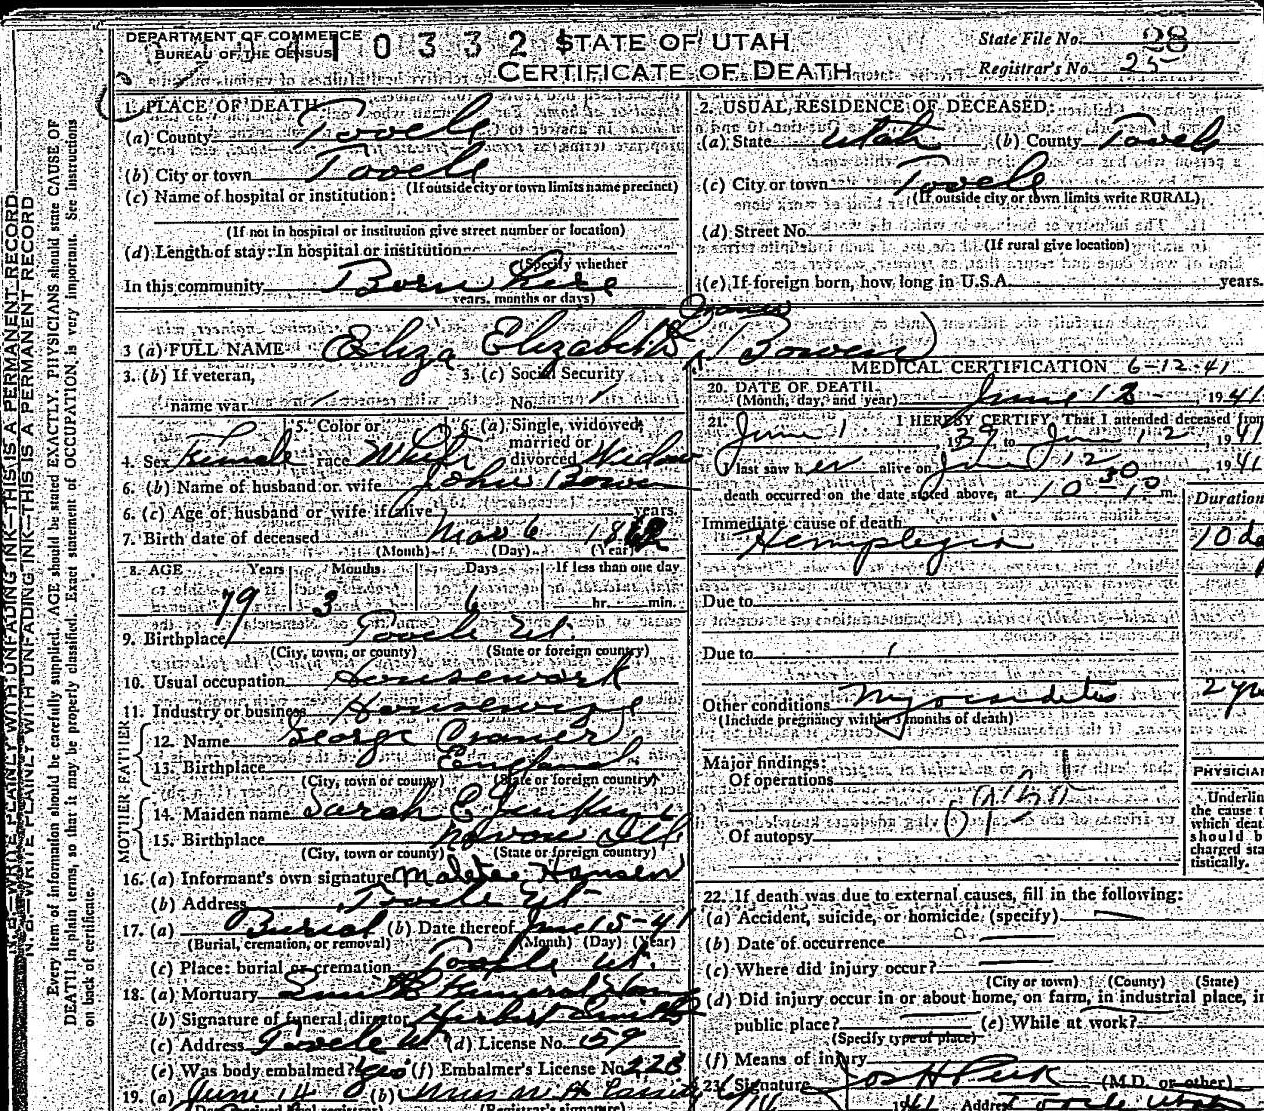 DEPARTMENT OF COMMERCE
BUREAU OF THE CENSUS
0 3 3 2
STATE OF UTAH
CERTIFICATE OF DEATH
State File No. 28
Registrar's No. 25
1. PLACE OF DEATH:
(a) County Tooele
(b) City or town Tooele
(If outside city or town limits name precinct)
(c) Name of hospital or institution:
(If not in hospital or institution give street number or location)
(d) Length of stay: In hospital or institution
(Specify whether
In this community Born Here
years, months or days)
2. USUAL RESIDENCE OF DECEASED:
(a) State Utah (b) County Tooele
(c) City or town Tooele
(If outside city or town limits write RURAL)
(d) Street No.
(If rural give location)
(e) If foreign born, how long in U.S.A. years.
3 (a) FULL NAME Eliza Elizabeth Craner Bowen
3. (b) If veteran,
name war
3. (c) Social Security
No.
4. Sex Female
5. Color or
race White
6. (a) Single, widowed,
married or
divorced Widow
6. (b) Name of husband or wife John Bowen
6. (c) Age of husband or wife if alive years.
7. Birth date of deceased Mar 6
(Month) (Day) (Year)
8. AGE Years Months Days If less than one day
79 3 6 hr. min.
9. Birthplace Tooele Ut.
(City, town, or county) (State or foreign country)
10. Usual occupation Housework
11. Industry or business Housewife
FATHER
12. Name George Craner
13. Birthplace England
(City, town or county) (State or foreign country)
MOTHER
14. Maiden name Sarah E Jenkins
15. Birthplace Ill
(City, town or county) (State or foreign country)
16. (a) Informant's own signature Hansen
(b) Address Tooele Ut
17. (a) Burial (b) Date thereof June 15-41
(Burial, cremation, or removal) (Month) (Day) (Year)
(c) Place: burial or cremation Tooele Ut.
18. (a) Mortuary Smith Funeral Home
(b) Signature of funeral director Herbert Smith
(c) Address Tooele Ut (d) License No. 159
(e) Was body embalmed? yes (f) Embalmer's License No. 228
19. (a) June 14 (b) Mrs
(Registrar's signature)
MEDICAL CERTIFICATION 6-12-41
20. DATE OF DEATH
(Month, day, and year) June 12 1941
21. I HEREBY CERTIFY, That I attended deceased from
June 1 1939 to June 12 1941
I last saw her alive on June 12 1941
death occurred on the date stated above, at 10 m.
Duration
Immediate cause of death
Hemiplegia 10 da
Due to
Due to
Other conditions Myocarditis 2 yrs
(Include pregnancy within 3 months of death)
Major findings:
Of operations
Of autopsy
PHYSICIAN
Underline
the cause t
which deat
should b
charged sta
tistically.
22. If death was due to external causes, fill in the following:
(a) Accident, suicide, or homicide (specify)
(b) Date of occurrence
(c) Where did injury occur?
(City or town) (County) (State)
(d) Did injury occur in or about home, on farm, in industrial place, in
public place? (e) While at work?
(Specify type of place)
(f) Means of injury
23. Signature Jos H Peck (M.D. or other)
1941 Address Tooele Utah
N.B.—WRITE PLAINLY WITH UNFADING INK—THIS IS A PERMANENT RECORD
Every item of information should be carefully supplied. AGE should be stated EXACTLY. PHYSICIANS should state CAUSE OF
DEATH in plain terms, so that it may be properly classified. Exact statement of OCCUPATION is very important. See instructions
on back of certificate.